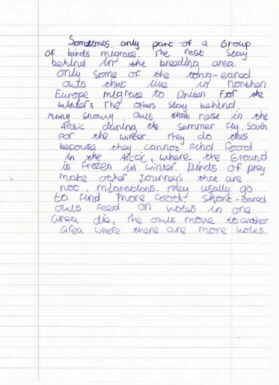 Sometimes only part of a Group
of birds migrate. The rest stay
behind in the breeding area.
Only some of the long-eared
owls that live in Northern
Europe migrate to Britain For the
winter. The others stay behind
many snowy owls that nest in the
Arctic during the summer fly south
For the winter. They do this
because they cannot find food
in the Arctic, where the Ground
is frozen in winter. Birds of prey
make other journeys that are
not migrations. They usally go
to find more food. Short-eared
owls feed on voles in one
area die, the owls move to another
area where there are more voles.